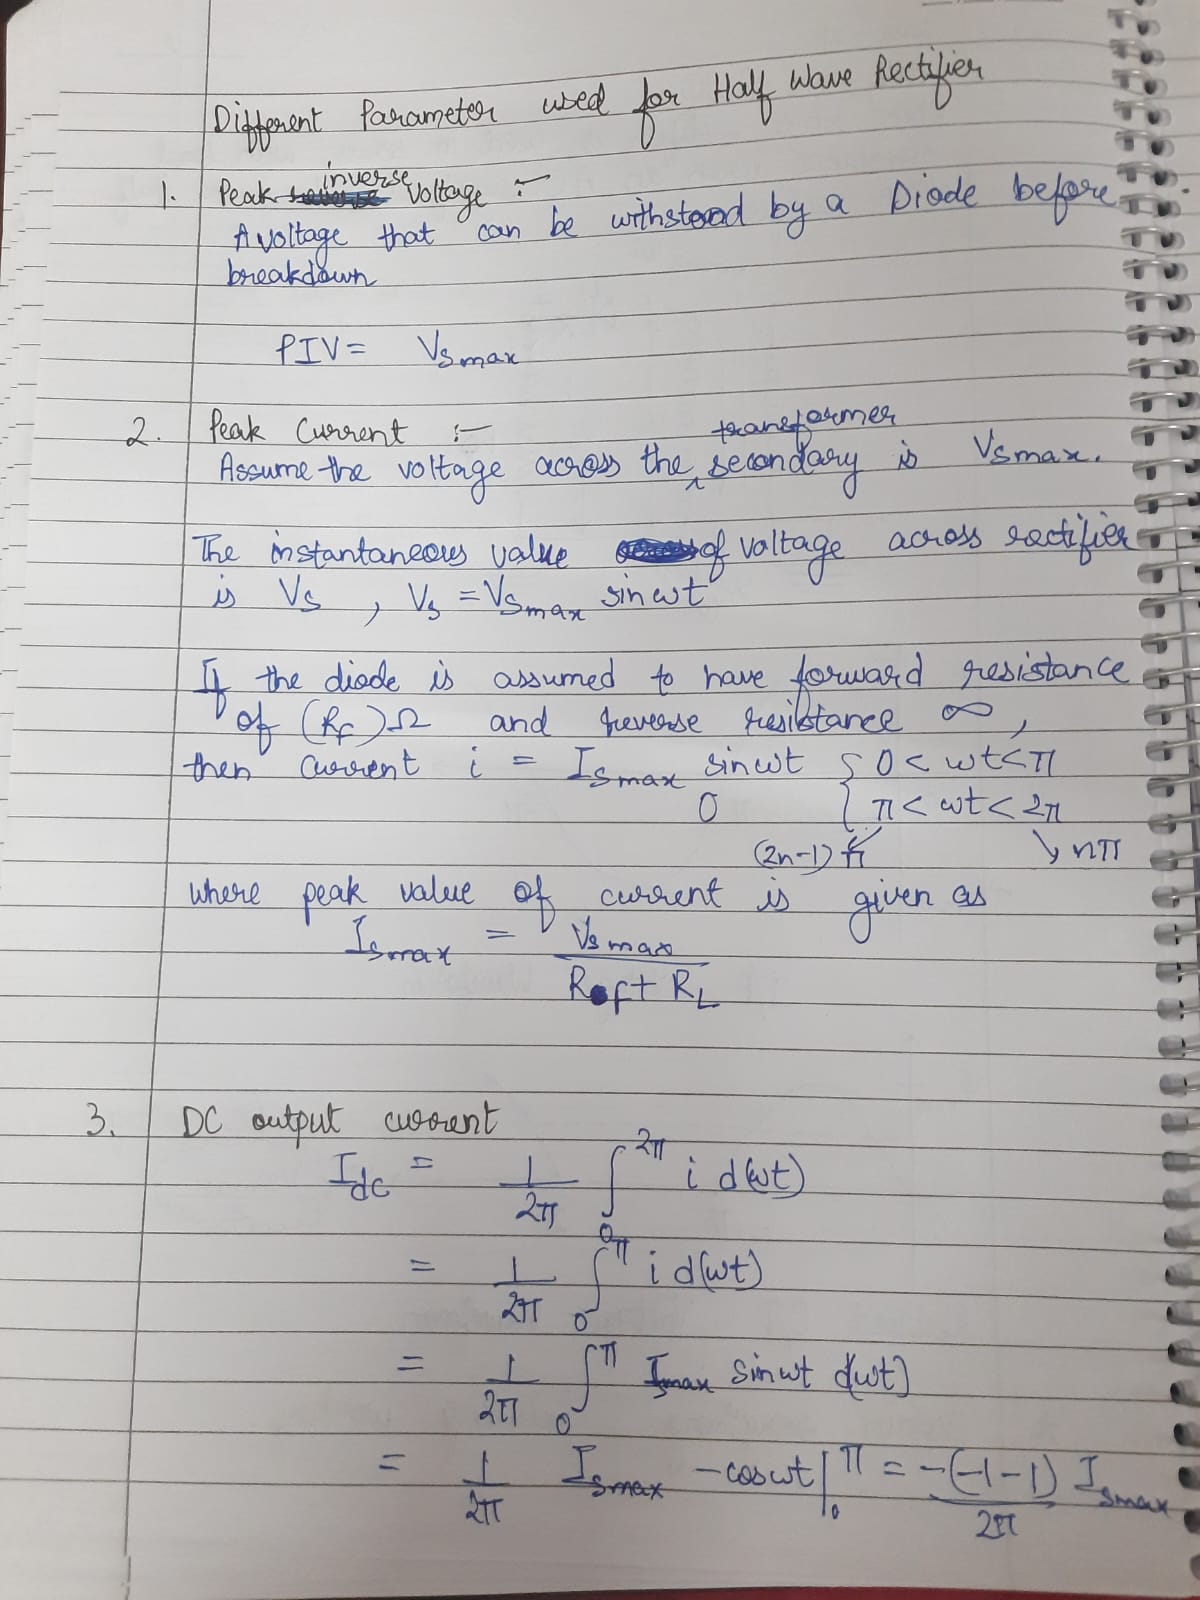 Different Parameter used for Half Wave Rectifier
inverse
1. Peak Voltage :-
A voltage that can be withstood by a Diode before
breakdown
PIV = Vsmax
2. Peak Current :-
transformer
Assume the voltage across the ^ secondary is Vsmax.
The instantaneous value of voltage across rectifier
is Vs , Vs = Vsmax sinωt
If the diode is assumed to have forward resistance
of (Rf)Ω and reverse resistance ∞,
then current i = Ismax sinωt { 0 < ωt < π
0 { π < ωt < 2π
(2n-1)π ↘ nπ
where peak value of current is given as
Ismax = Vsmax
Rf + RL
3. DC output current
Idc = 1/2π ∫₀^2π i d(ωt)
= 1/2π ∫₀^π i d(ωt)
= 1/2π ∫₀^π Ismax sinωt d(ωt)
= 1/2π Ismax -cosωt |₀^π = -(-1-1)/2π Ismax